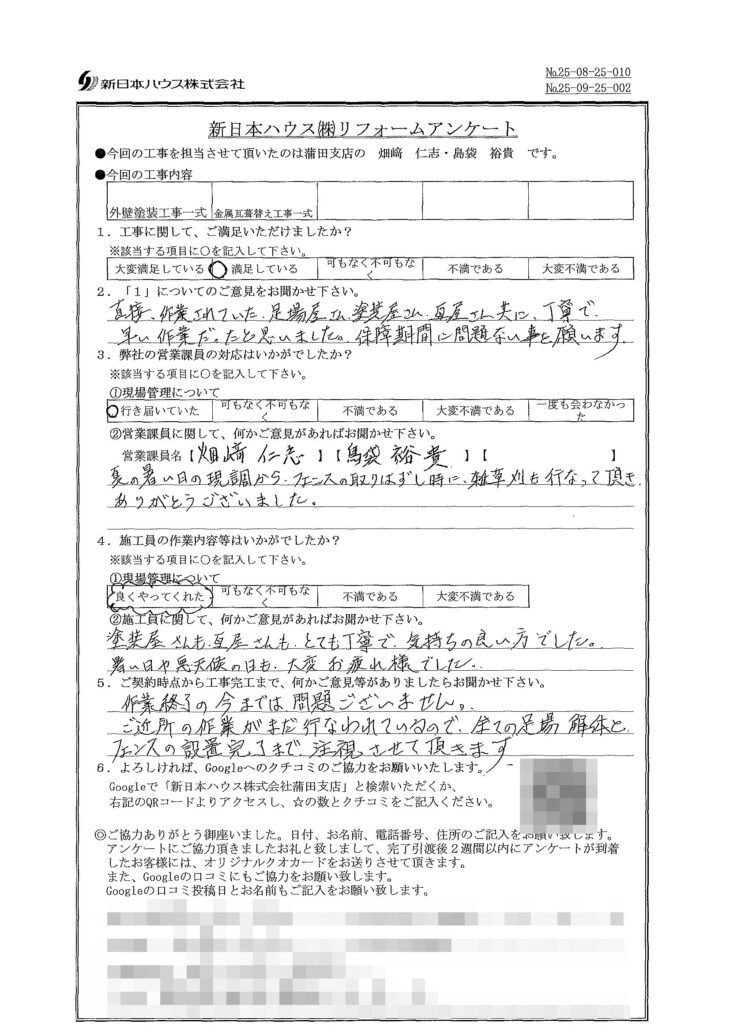 新日本ハウス株式会社
№25-08-25-010
№25-09-25-002
新日本ハウス㈱リフォームアンケート
●今回の工事を担当させて頂いたのは蒲田支店の　畑﨑　仁志・島袋　裕貴　です。
●今回の工事内容
外壁塗装工事一式 金属瓦葺替え工事一式
１．工事に関して、ご満足いただけましたか？
※該当する項目に○を記入して下さい。
大変満足している 満足している 可もなく不可もなく 不満である 大変不満である
２．「１」についてのご意見をお聞かせ下さい。
直接、作業されていた、足場屋さん、塗装屋さん、瓦屋さん共に、丁寧で
早い作業だったと思いました。保障期間に問題ない事を願います。
３．弊社の営業課員の対応はいかがでしたか？
※該当する項目に○を記入して下さい。
①現場管理について
行き届いていた 可もなく不可もなく 不満である 大変不満である 一度も会わなかった
②営業課員に関して、何かご意見があればお聞かせ下さい。
営業課員名【畑﨑 仁志】【島袋 裕貴】【　】
夏の暑い日の現調から、フェンスの取りはずし時に、雑草刈も行なって頂き
ありがとうございました。
４．施工員の作業内容等はいかがでしたか？
※該当する項目に○を記入して下さい。
①現場管理について
良くやってくれた 可もなく不可もなく 不満である 大変不満である
②施工員に関して、何かご意見があればお聞かせ下さい。
塗装屋さんも瓦屋さんも、とても丁寧で、気持ちの良い方でした。
暑い日や悪天候の日も、大変お疲れ様でした。
５．ご契約時点から工事完工まで、何かご意見等がありましたらお聞かせ下さい。
作業終了の今までは問題ございません。
ご近所の作業がまだ行なわれているので、全ての足場解体と
フェンスの設置完了まで、注視させて頂きます
６．よろしければ、Googleへのクチコミのご協力をお願いいたします。
Googleで「新日本ハウス株式会社蒲田支店」と検索いただくか、
右記のQRコードよりアクセスし、☆の数とクチコミをご記入ください。
◎ご協力ありがとう御座いました。日付、お名前、電話番号、住所のご記入をお願い致します。
アンケートにご協力頂きましたお礼と致しまして、完了引渡後２週間以内にアンケートが到着
したお客様には、オリジナルクオカードをお送りさせて頂きます。
また、Googleの口コミにもご協力をお願い致します。
Googleの口コミ投稿日とお名前もご記入をお願い致します。